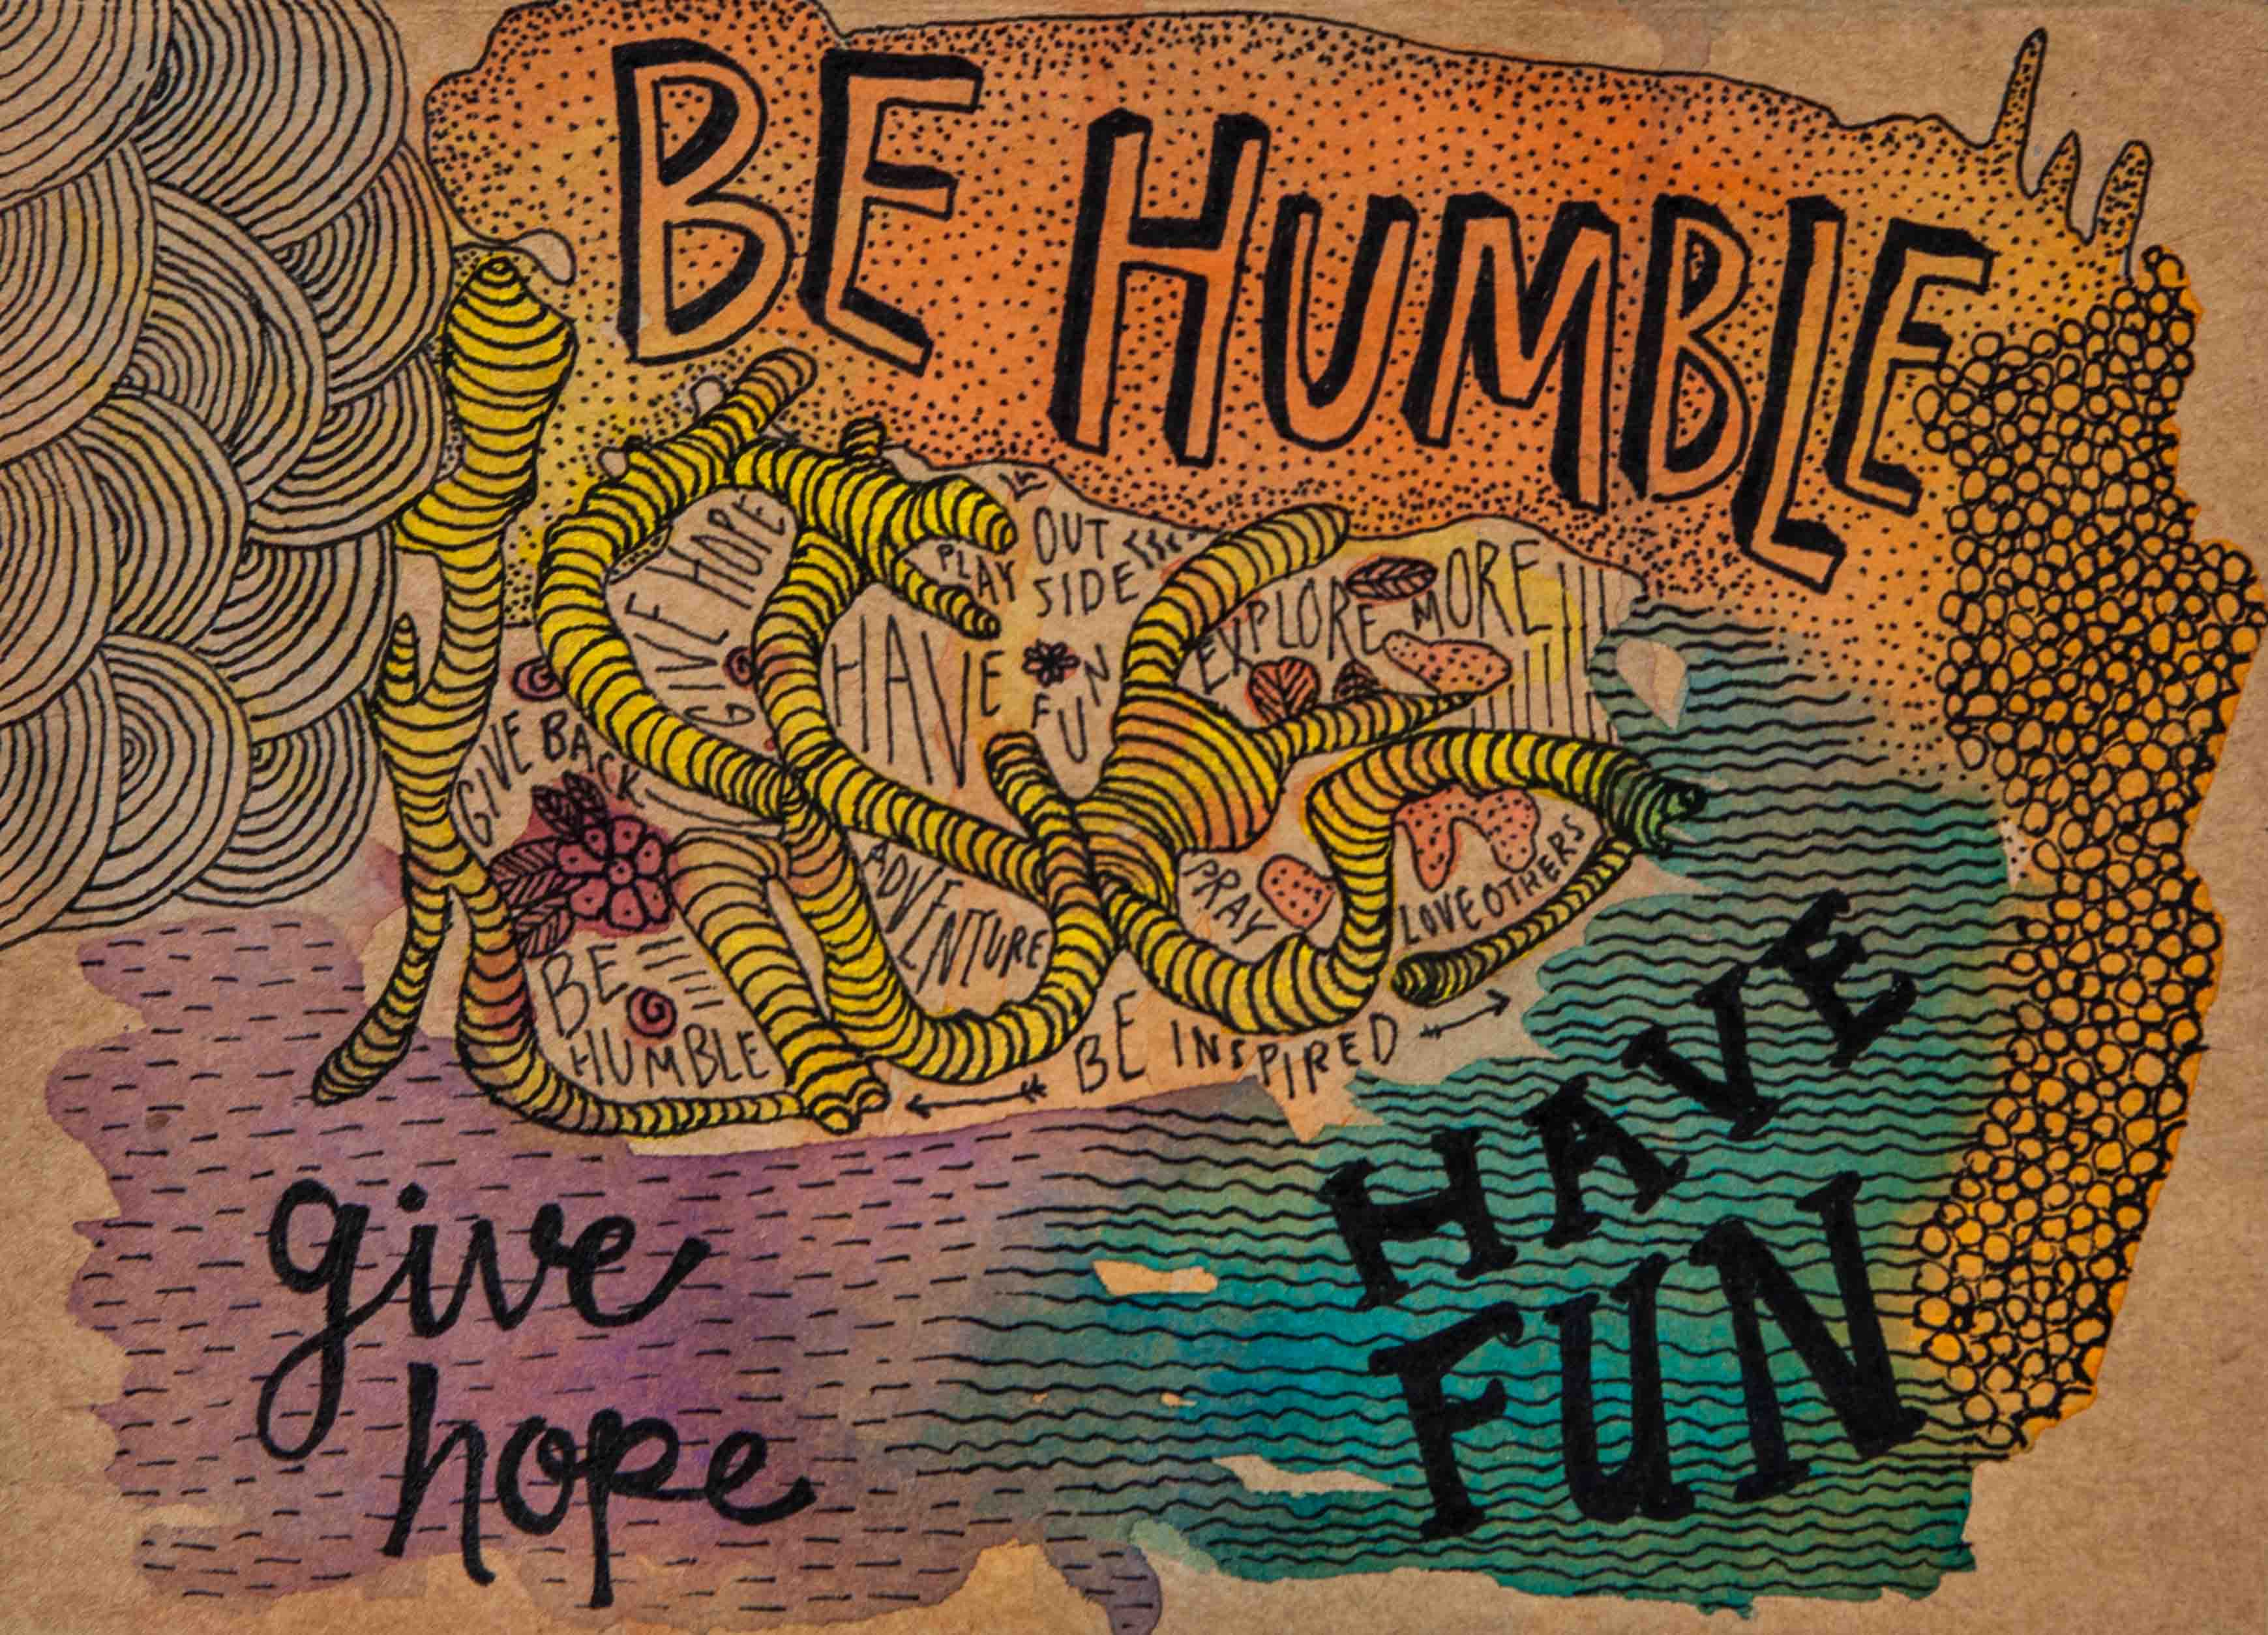 BE HUMBLE
GIVE HOPE
PLAY
OUT
SIDE
HAVE
FUN
EXPLORE MORE
GIVE BACK
ADVENTURE
PRAY
LOVE OTHERS
BE
HUMBLE
BE INSPIRED
give
hope
HAVE
FUN